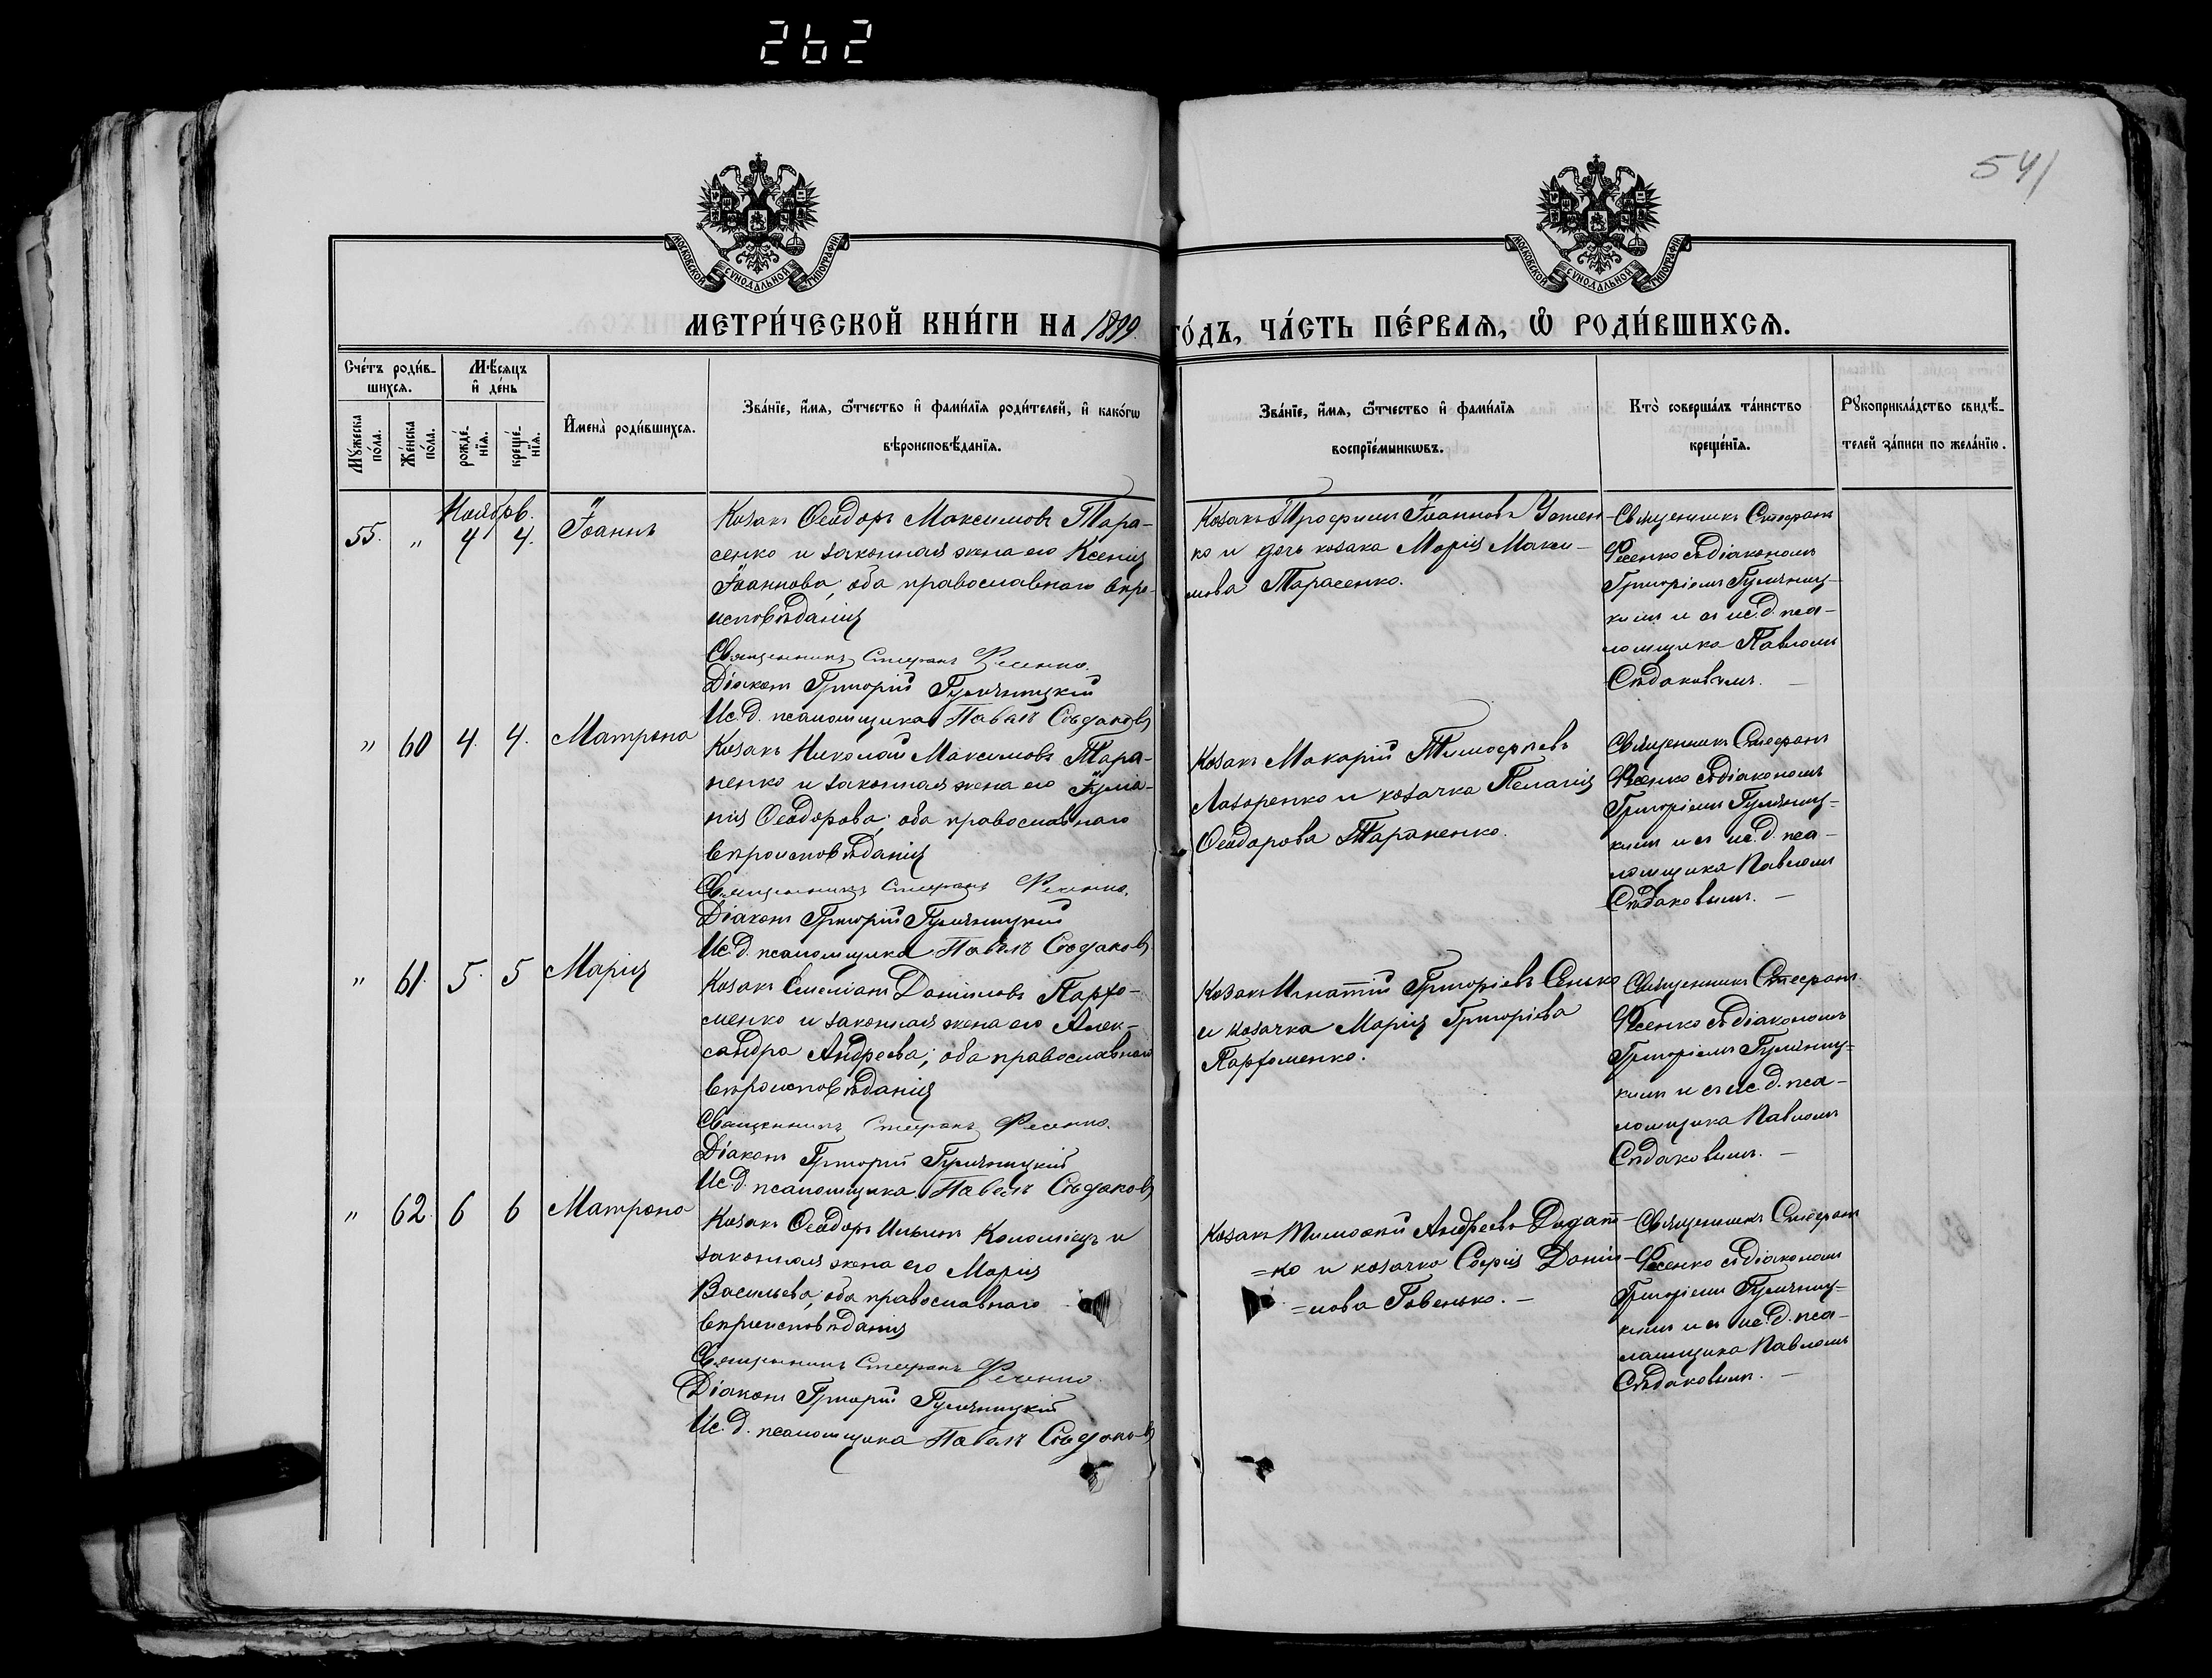 262
541
МОСКОВСКОЙ СѴНОДАЛЬНОЙ ТИПОГРАФІИ
МОСКОВСКОЙ СѴНОДАЛЬНОЙ ТИПОГРАФІИ
МЕТРИ́ЧЕСКОЙ КНИ́ГИ НА 1899 ГО́ДЪ, ЧА́СТЬ ПЕ́РВАЯ, Ѡ҆ РОДИ́ВШИХСЯ.
Сче́тъ роди́в-
шихся.
Мꙋ́жеска по́ла.
Же́нска по́ла.
Мѣ́сяцъ
и҆ де́нь
рожде́-
нїя.
креще́-
нїя.
И҆мена̀ роди́вшихся.
Зва́нїе, и҆́мя, ѻ҆́тчество и҆ фами́лїя роди́телей, и҆ како́гѡ
вѣроисповѣ́данїя.
Зва́нїе, и҆́мя, ѻ҆́тчество и҆ фами́лїя
воспрїе́мникѡвъ.
Кто̀ соверша́лъ та́инство
креще́нїя.
Рꙋкоприкла́дство свидѣ́-
телей за́писи по жела́нїю.
Ноябрь.
55. " 4 4. Іоаннъ
Козакъ Ѳеодоръ Максимовъ Тара-
сенко и законная жена его Ксенія
Іоаннова; оба православнаго вѣро-
исповѣданія
Священникъ Стефанъ Фесенко.
Діаконъ Григорій
Ис. д. псаломщика Павелъ Сѣдаковъ
Козакъ Трофимъ Іоанновъ
ко и дочь козака Марія Макси-
мова Тарасенко.
Священникъ Стефанъ
Фесенко съ діакономъ
Григоріемъ
кимъ и съ ис. д. пса-
ломщика Павломъ
Сѣдаковымъ. —
" 60 4. 4. Матрона
Козакъ Николай Максимовъ Тара-
ненко и законная жена его Іулiа-
нія Ѳеодорова; оба православнаго
вѣроисповѣданія
Священникъ Стефанъ Фесенко.
Діаконъ Григорій
Ис. д. псаломщика Павелъ Сѣдаковъ
Козакъ Макарій Тимоѳеевъ
Лазаренко и козачка Пелагія
Ѳеодорова Тараненко.
Священникъ Стефанъ
Фесенко съ діакономъ
Григоріемъ
кимъ и съ ис. д. пса-
ломщика Павломъ
Сѣдаковымъ. —
" 61. 5. 5 Марія
Козакъ Емеліанъ Даниловъ Парфо-
менко и законная жена его Алек-
сандра Андреева; оба православнаго
вѣроисповѣданія
Священникъ Стефанъ Фесенко.
Діаконъ Григорій
Ис. д. псаломщика Павелъ Сѣдаковъ
Козакъ Игнатій Григоріевъ Сенько
и козачка Марія Григоріева
Парфоменко.
Священникъ Стефанъ
Фесенко съ діакономъ
Григоріемъ
кимъ и съ ис. д. пса-
ломщика Павломъ
Сѣдаковымъ. —
" 62. 6 6 Матрона
Козакъ Ѳеодоръ Ильинъ Коломіецъ и
законная жена его Марія
Васильева; оба православнаго
вѣроисповѣданія
Священникъ Стефанъ Фесенко.
Діаконъ Григорій
Ис. д. псаломщика Павелъ Сѣдаковъ
Козакъ Тимоѳей Андреевъ
=ко и козачка Софія Дани-
=лова Говенько. —
Священникъ Стефанъ
Фесенко съ діакономъ
Григоріемъ
кимъ и съ ис. д. пса-
ломщика Павломъ
Сѣдаковымъ. —